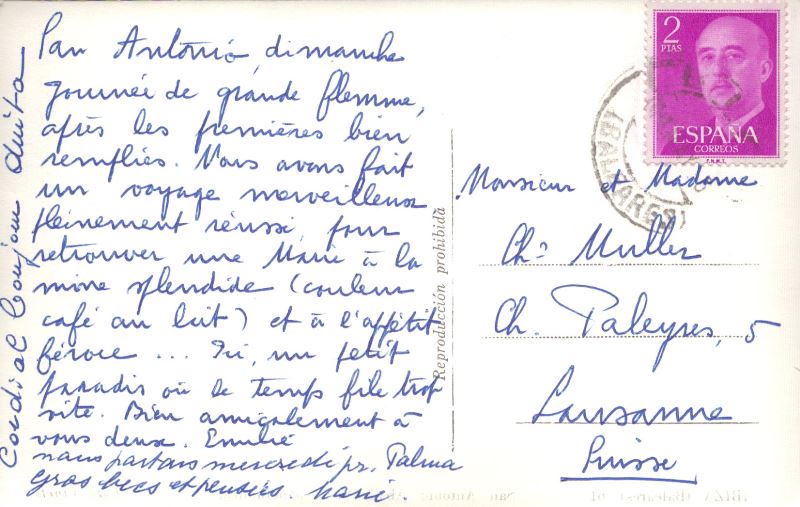 San Antonio, dimanche
journée de grande flemme,
après les premières bien
remplies. Nous avons fait
un voyage merveilleux
pleinement réussi, pour
retrouver une Marie à la
mine splendide (couleur
café au lait) et à l'appétit
féroce ... Ici, un petit
paradis où le temps file trop
vite. Bien amicalement à
vous deux. Emilie
nous partons mercredi pr. Palma
gros becs et pensées Marie.
Cordial bonjour
Reproducción prohibida
2
PTAS
ESPAÑA
CORREOS
F.N.M.T.
Monsieur et Madame
Ch. Muller
Ch. Paleyres, 5
Lausanne
Suisse